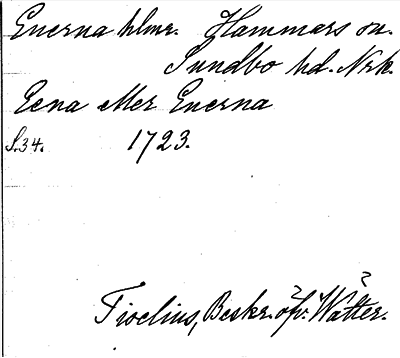 Enerna hlmr. Hammars sn.
Sundbo hd. Nrk.
Eena eller Enerna
S.34. 1723.
Tiselius, Beskr. öfv. Wätter.